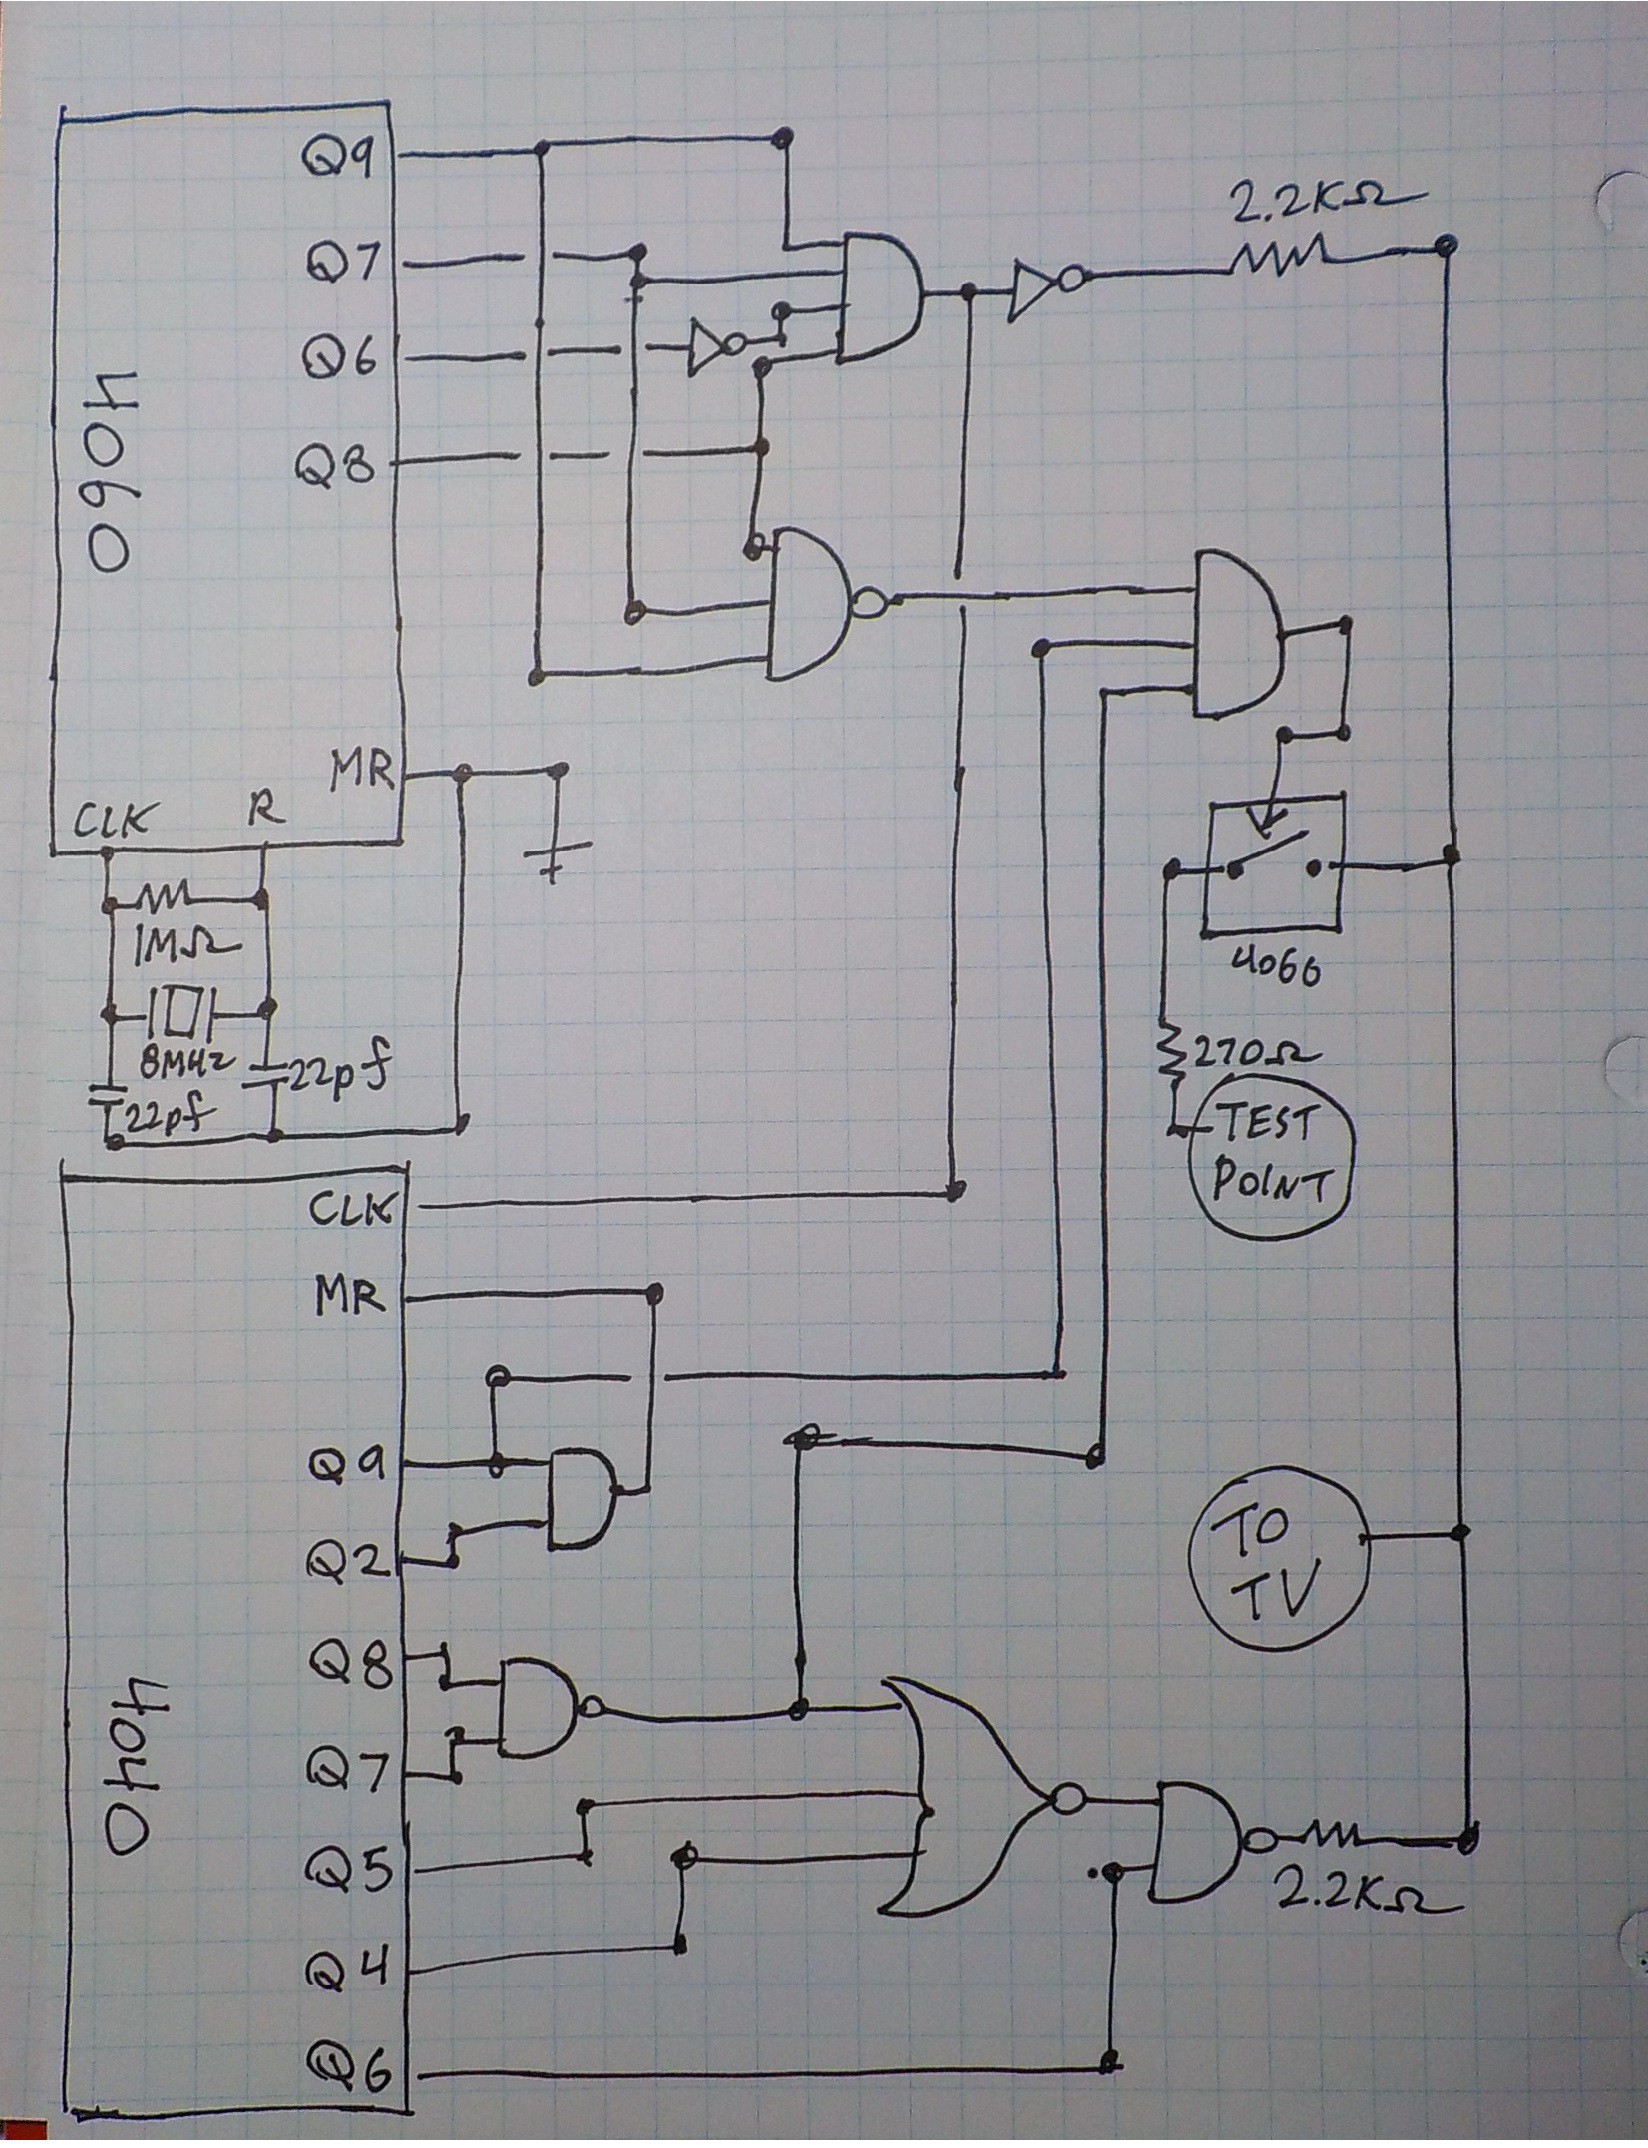 4060
Q9
Q7
Q6
Q8
MR
CLK
R
1MΩ
8MHz
22pf
22pf
2.2KΩ
4066
270Ω
TEST
POINT
4040
CLK
MR
Q9
Q2
Q8
Q7
Q5
Q4
Q6
TO
TV
2.2KΩ